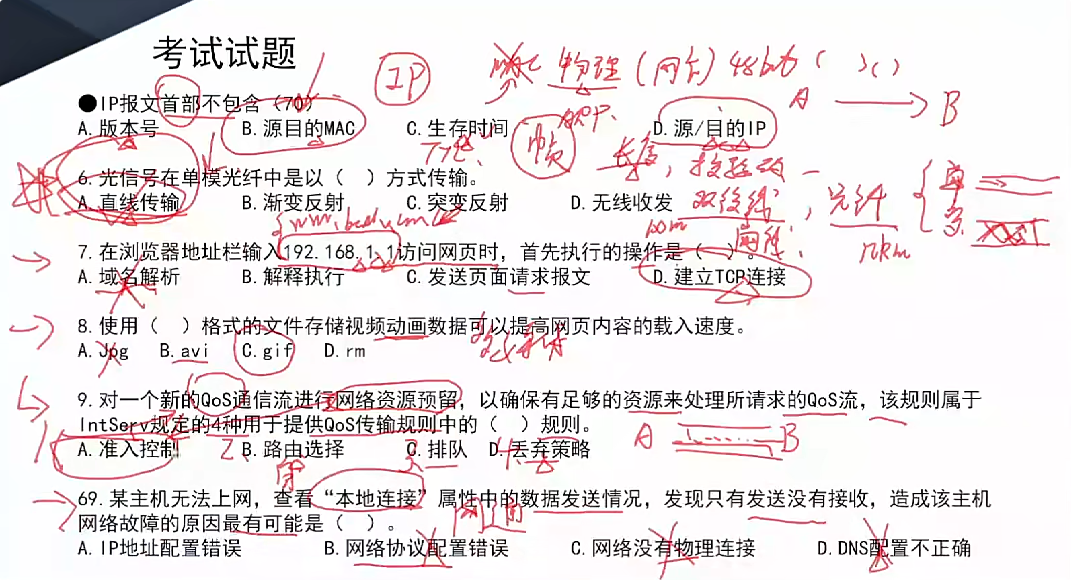 考试试题
IP
物理（网卡）48bit
●IP报文首部不包含（70）
A B
A.版本号 B.源目的MAC C.生存时间 D.源/目的IP
TTL
ARP
帧
长度，校验码
6. 光信号在单模光纤中是以（ ）方式传输。
A.直线传输 B.渐变反射 C.突变反射 D.无线收发
双绞线，光纤
单
多
100m
10km
7. 在浏览器地址栏输入192.168.1.1访问网页时，首先执行的操作是（ ）。
A.域名解析 B.解释执行 C.发送页面请求报文 D.建立TCP连接
8. 使用（ ）格式的文件存储视频动画数据可以提高网页内容的载入速度。
A.Jpg B.avi C.gif D.rm
9. 对一个新的QoS通信流进行网络资源预留，以确保有足够的资源来处理所请求的QoS流，该规则属于
IntServ规定的4种用于提供QoS传输规则中的（ ）规则。
A B
A.准入控制 B.路由选择 C.排队 D.丢弃策略
69. 某主机无法上网，查看“本地连接”属性中的数据发送情况，发现只有发送没有接收，造成该主机
网络故障的原因最有可能是（ ）。
A.IP地址配置错误 B.网络协议配置错误 C.网络没有物理连接 D.DNS配置不正确